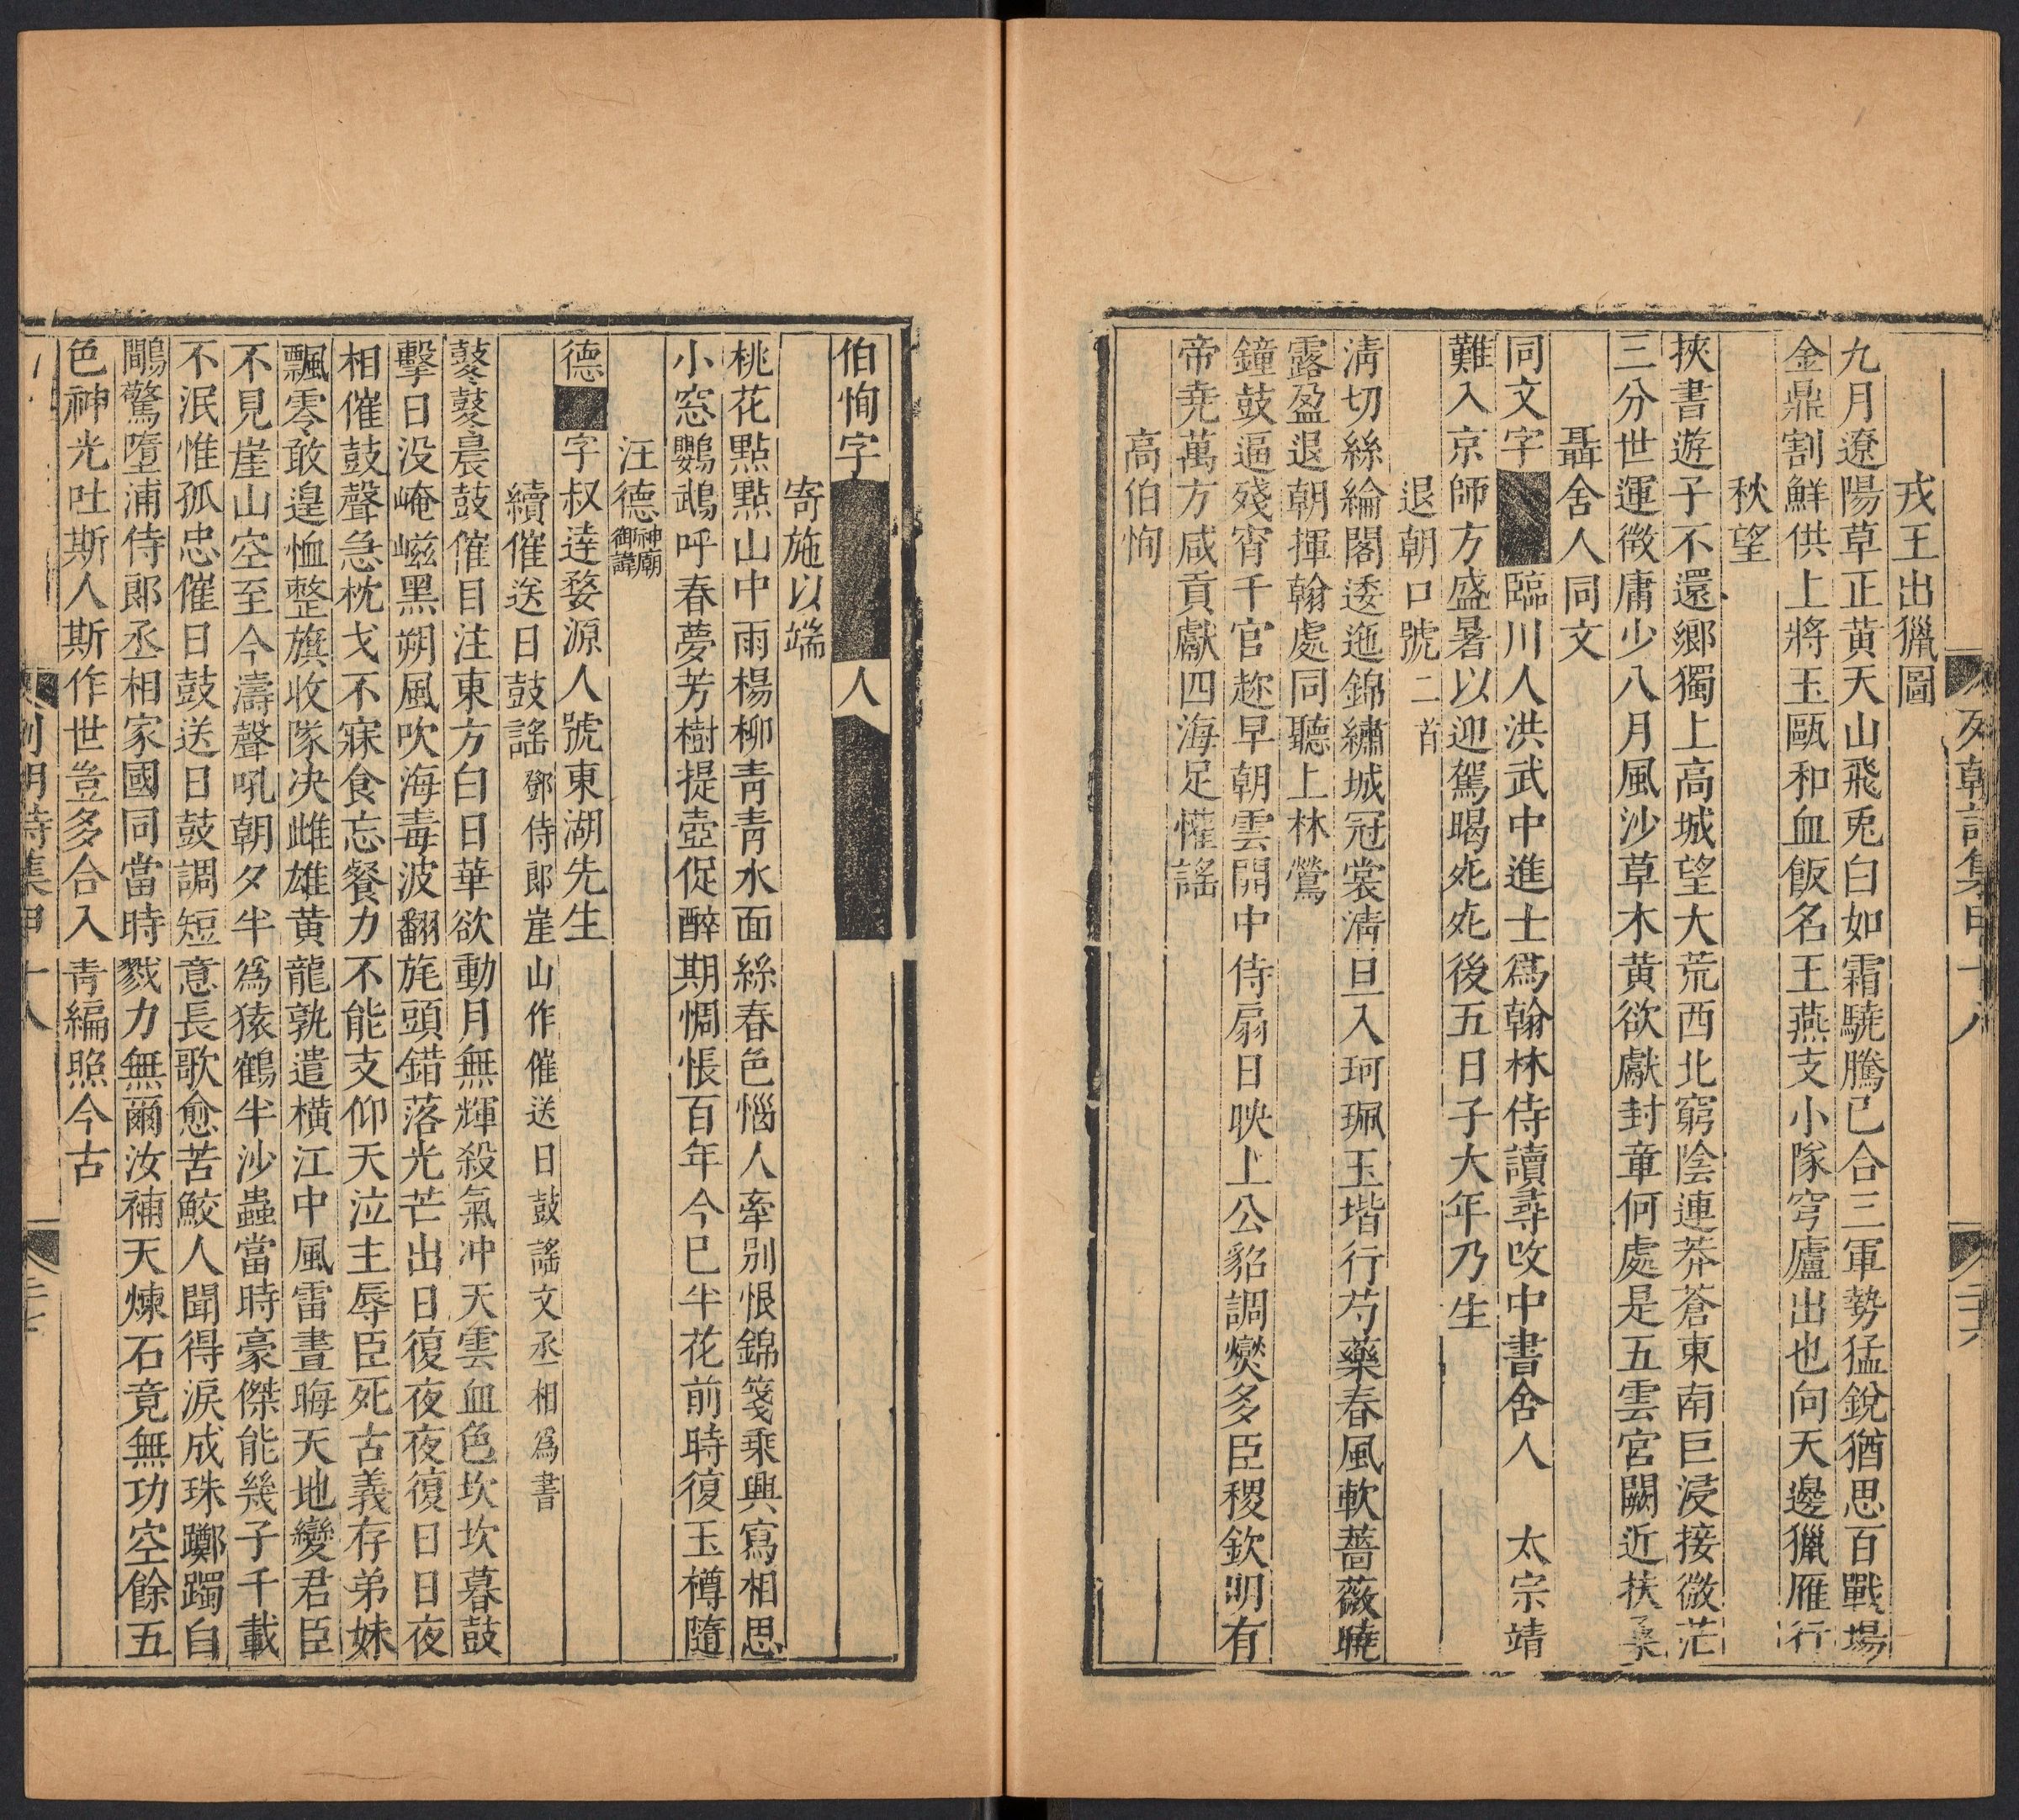 列朝詩集甲十八
二十六
戎王出獵圖
九月遼陽草正黄天山飛兎白如霜驍騰已合三軍勢猛銳猶思百戰場
金鼎割鮮供上將玉甌和血飯名王燕支小隊穹廬出也向天邊獵雁行
秋望
挾書遊子不還鄉獨上高城望大荒西北窮陰連莽蒼東南巨浸接微茫
三分世運徵庸少八月風沙草木黄欲獻封章何處是五雲宮闕近扶桑
聶舍人同文
同文字臨川人洪武中進士爲翰林侍讀尋攺中書舍人　太宗靖
難入京師方盛暑以迎駕暍死死後五日子大年乃生
退朝口號二首
淸切絲綸閣逶迤錦繡城冠裳淸旦入珂珮玉堦行芍藥春風軟薔薇曉
露盈退朝揮翰處同聽上林鶯
鐘鼓逼殘宵千官趂早朝雲開中侍扇日映上公貂調爕多臣稷欽明有
帝堯萬方咸貢獻四海足懽謠
高伯恂
伯恂字　人
寄施以端
桃花點點山中雨楊柳靑靑水面絲春色惱人牽别恨錦箋乘興寫相思
小窓鸚鵡呼春夢芳樹提壺促醉期惆悵百年今已半花前時復玉樽隨
汪德神廟御諱
德字叔逹婺源人號東湖先生
續催送日鼓謠鄧侍郎崖山作催送日鼓謠文丞相爲書
鼕鼕晨鼓催目注東方白日華欲動月無輝殺氣冲天雲血色坎坎暮鼓
擊日没崦嵫黑朔風吹海毒波翻旄頭錯落光芒出日復夜夜夜復日日夜
相催鼓聲急枕戈不寐食忘餐力不能支仰天泣主辱臣死古義存弟妹
飄零敢遑恤整旗收隊决雌雄黄龍孰遣横江中風雷晝晦天地變君臣
不見崖山空至今濤聲吼朝夕半爲猿鶴半沙蟲當時豪傑能幾子千載
不泯惟孤忠催日鼓送日鼓調短意長歌愈苦鮫人聞得淚成珠躑躅自
鷴驚墮浦侍郎丞相家國同當時戮力無爾汝補天煉石竟無功空餘五
色神光吐斯人斯作世豈多合入靑編照今古
列朝詩集甲十八
二十七